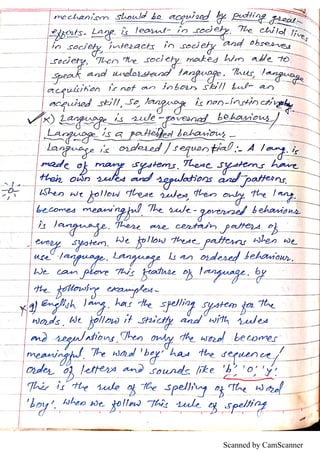 mechanism should be acquired by putting great
efforts. Lang. is learnt in society. The child lives
in society, interacts in society and observes
society. Then the society makes him able to
speak and understand language. Thus language
acquisition is not an inborn skill but an
acquired skill. So, language is non-instinctively.
x) Language is rule-governed behaviour/
Language is a patterned behaviour -
Language is ordered/sequential :- A lang. is
made of many systems. These systems have
their own rules and regulations and patterns.
When we follow these rules, then only the lang.
becomes meaningful. The rule-governed behaviour
is language. There are certain pattern of
every system. We follow these pattern when we
use language. Language is an ordered behaviour.
We can prove this feature of language. by
the following examples-
x g) English lang. has the spelling system for the
words. We follow it strictly and with rules
and regulations. Then only the word becomes
meaningful. The word 'boy' has the sequence/
order of letters and sounds like 'b', 'o', 'y'.
This is the rule of the spelling of the word
'boy'. When we follow this rule of spelling
Scanned by CamScanner